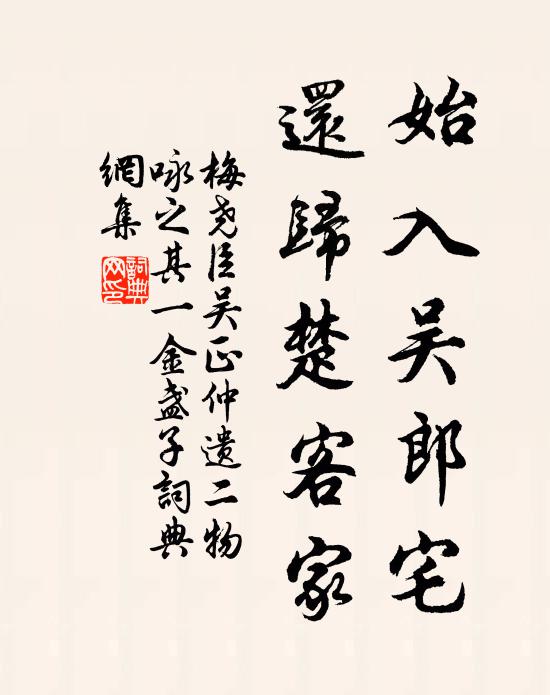 始入吴郎宅
還歸楚客家
梅尧臣吴正仲遗二物
咏之其一金盏子詞典
網集
詞典網印